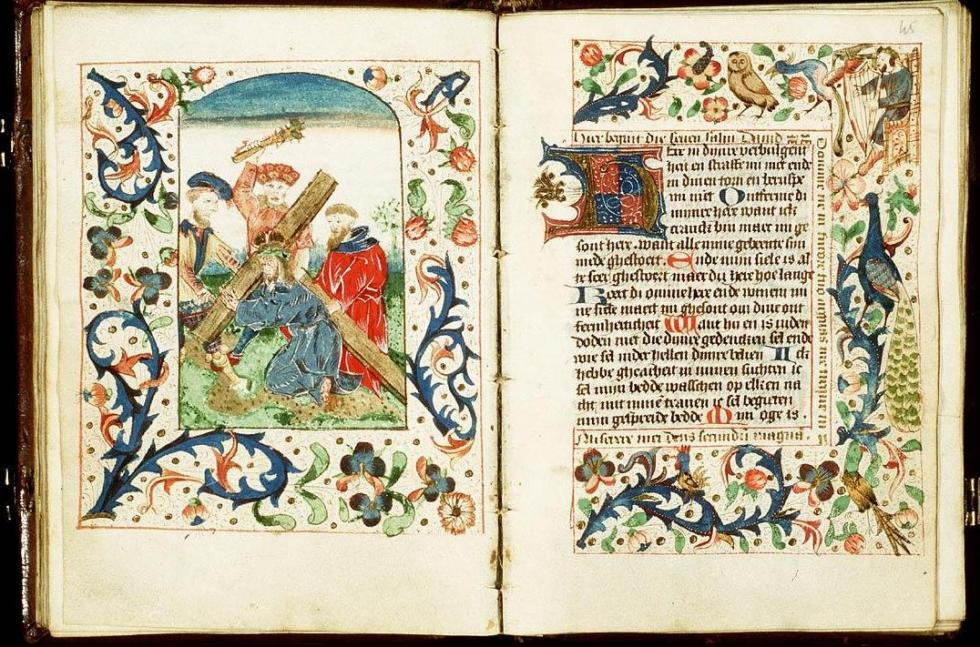 45
Hier begint die seuen salm Dauid
Here in dinre verbulgent
heit en straffe mi niet ende
in dinen torn en berispe
mi niet Ontferme di
minre here want ick
cranck bin maec mi ge
sont here. want alle mine gebeente sijn
mede ghestoert. Ende mijn siele is al
te seer ghestoert maer du here hoe lange
Keert di omme here ende mi
ne siele maect mi ghesont om dine ont
fermherticheit Want hi en is inder
doden niet die dinre gedencken sel ende
wie sel inder hellen dinre belien Ick
hebbe ghearbeit in minen suchten ic
sel mijn bedde wasschen op elken na
cht mit mine tranen ic sel begieten
mijn gespreide bedde Mijn oge is.
Miserere mei deus secundu magna.
Domine ne in furore tuo arguas me neque in